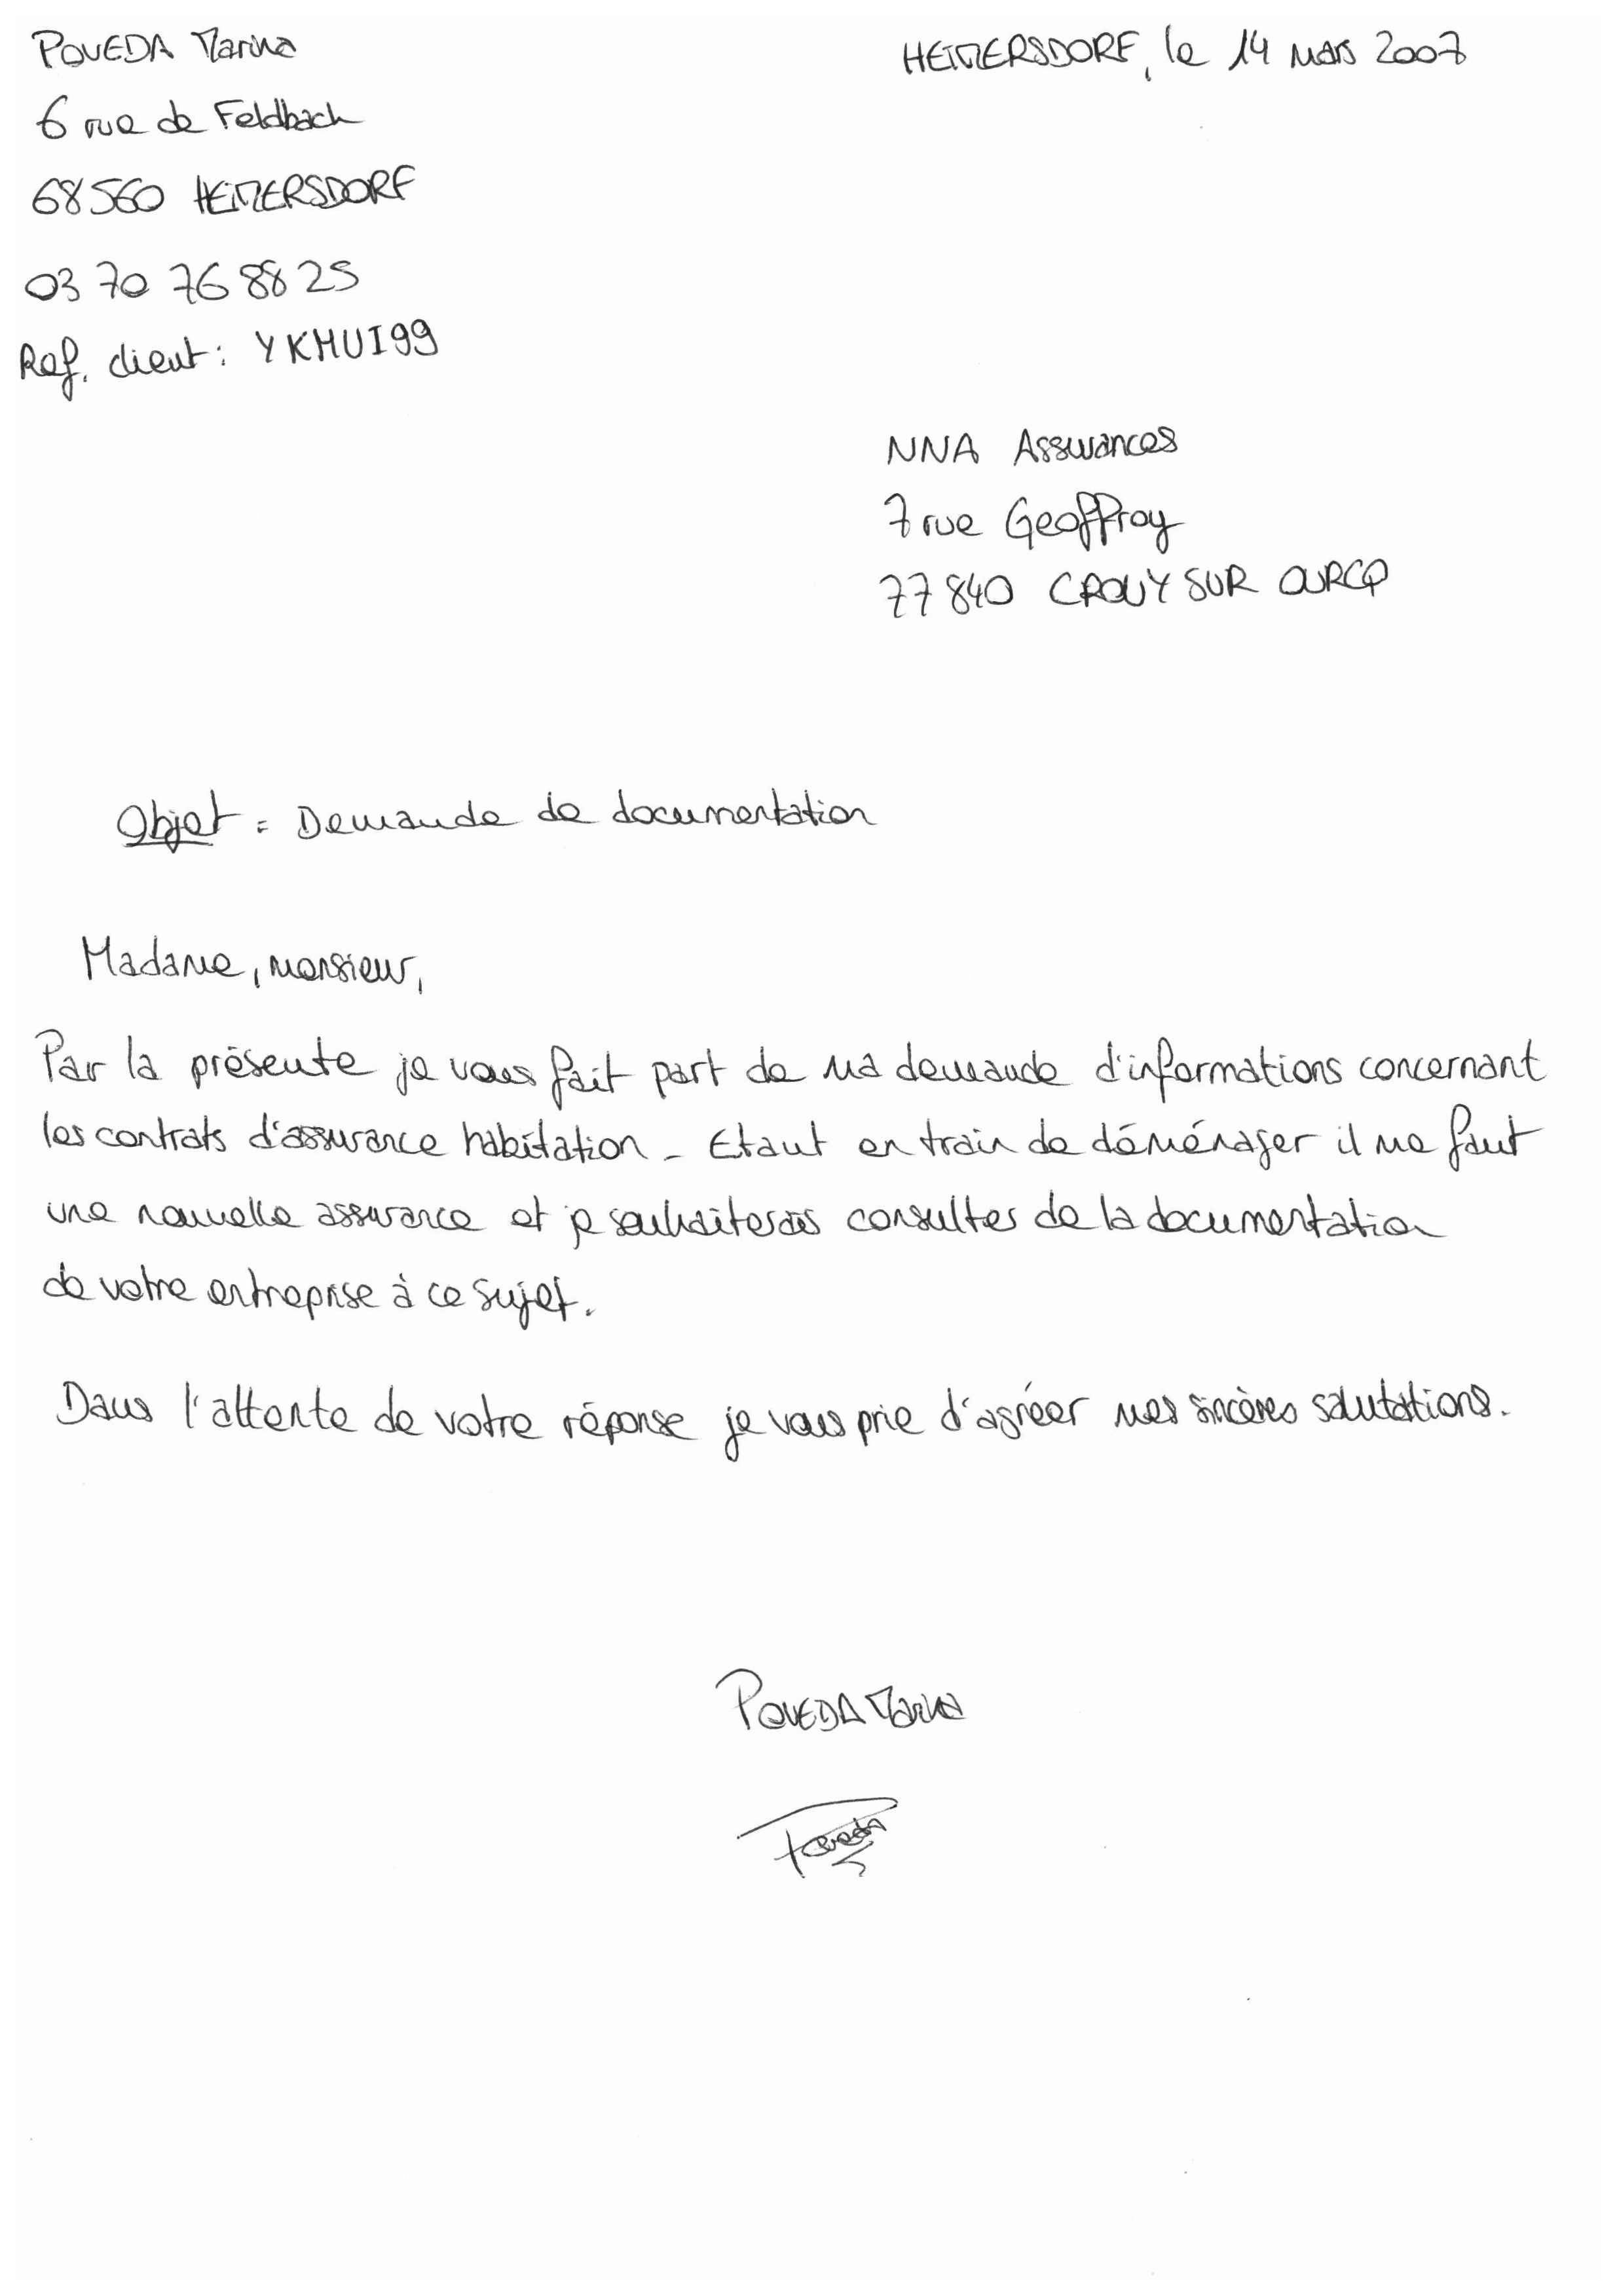 POVEDA Marina
HEIMERSDORF, le 14 mars 2007
6 rue de Feldbach
68560 HEIMERSDORF
03 70 76 88 25
Ref. client : YKHUI99
NNA Assurances
7 rue Geoffroy
77840 CROUY SUR OURCQ
Objet : Demande de documentation
Madame, monsieur,
Par la présente je vous fait part de ma demande d'informations concernant
les contrats d'assurance habitation. Etant en train de déménager il me faut
une nouvelle assurance et je souhaiterais consulter de la documentation
de votre entreprise à ce sujet.
Dans l'attente de votre réponse je vous prie d'agréer mes sincères salutations.
POVEDA Marina
Poveda